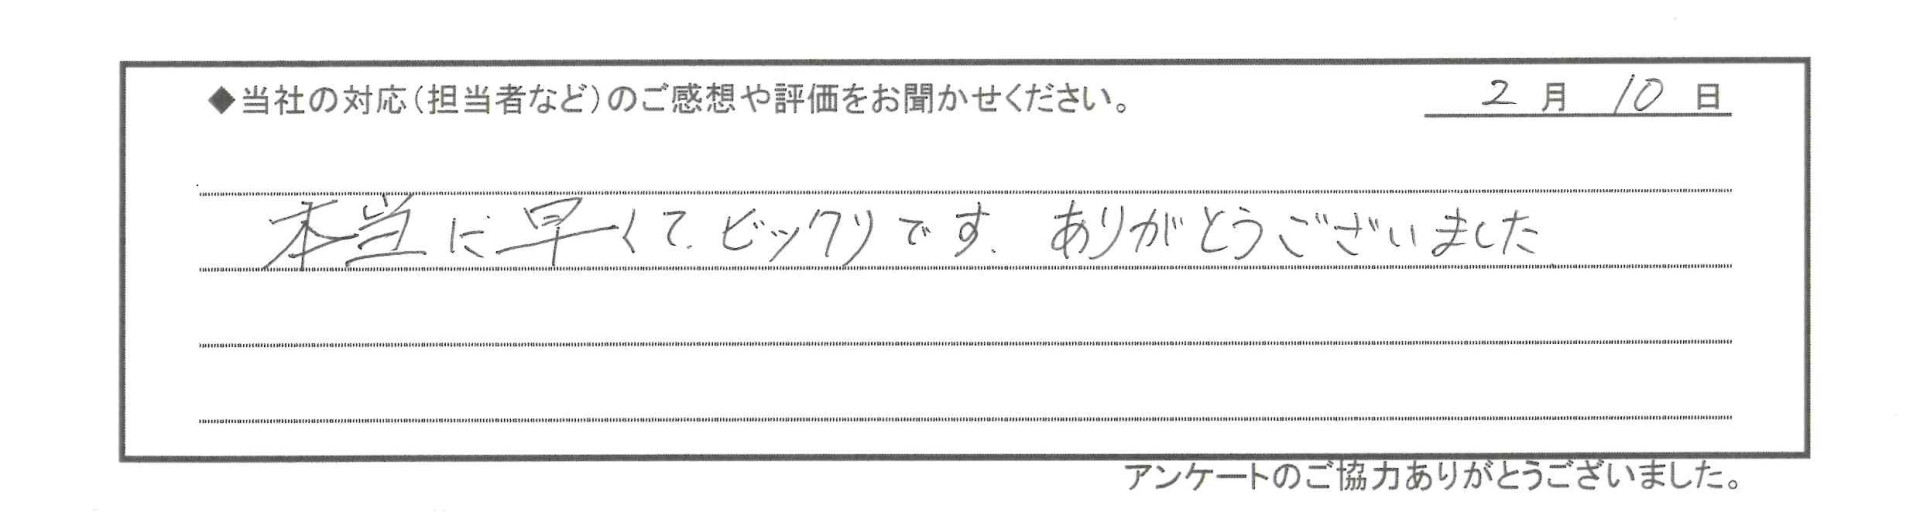 ◆当社の対応(担当者など)のご感想や評価をお聞かせください。 2月10日
本当に早くて、ビックリです、ありがとうございました
アンケートのご協力ありがとうございました。